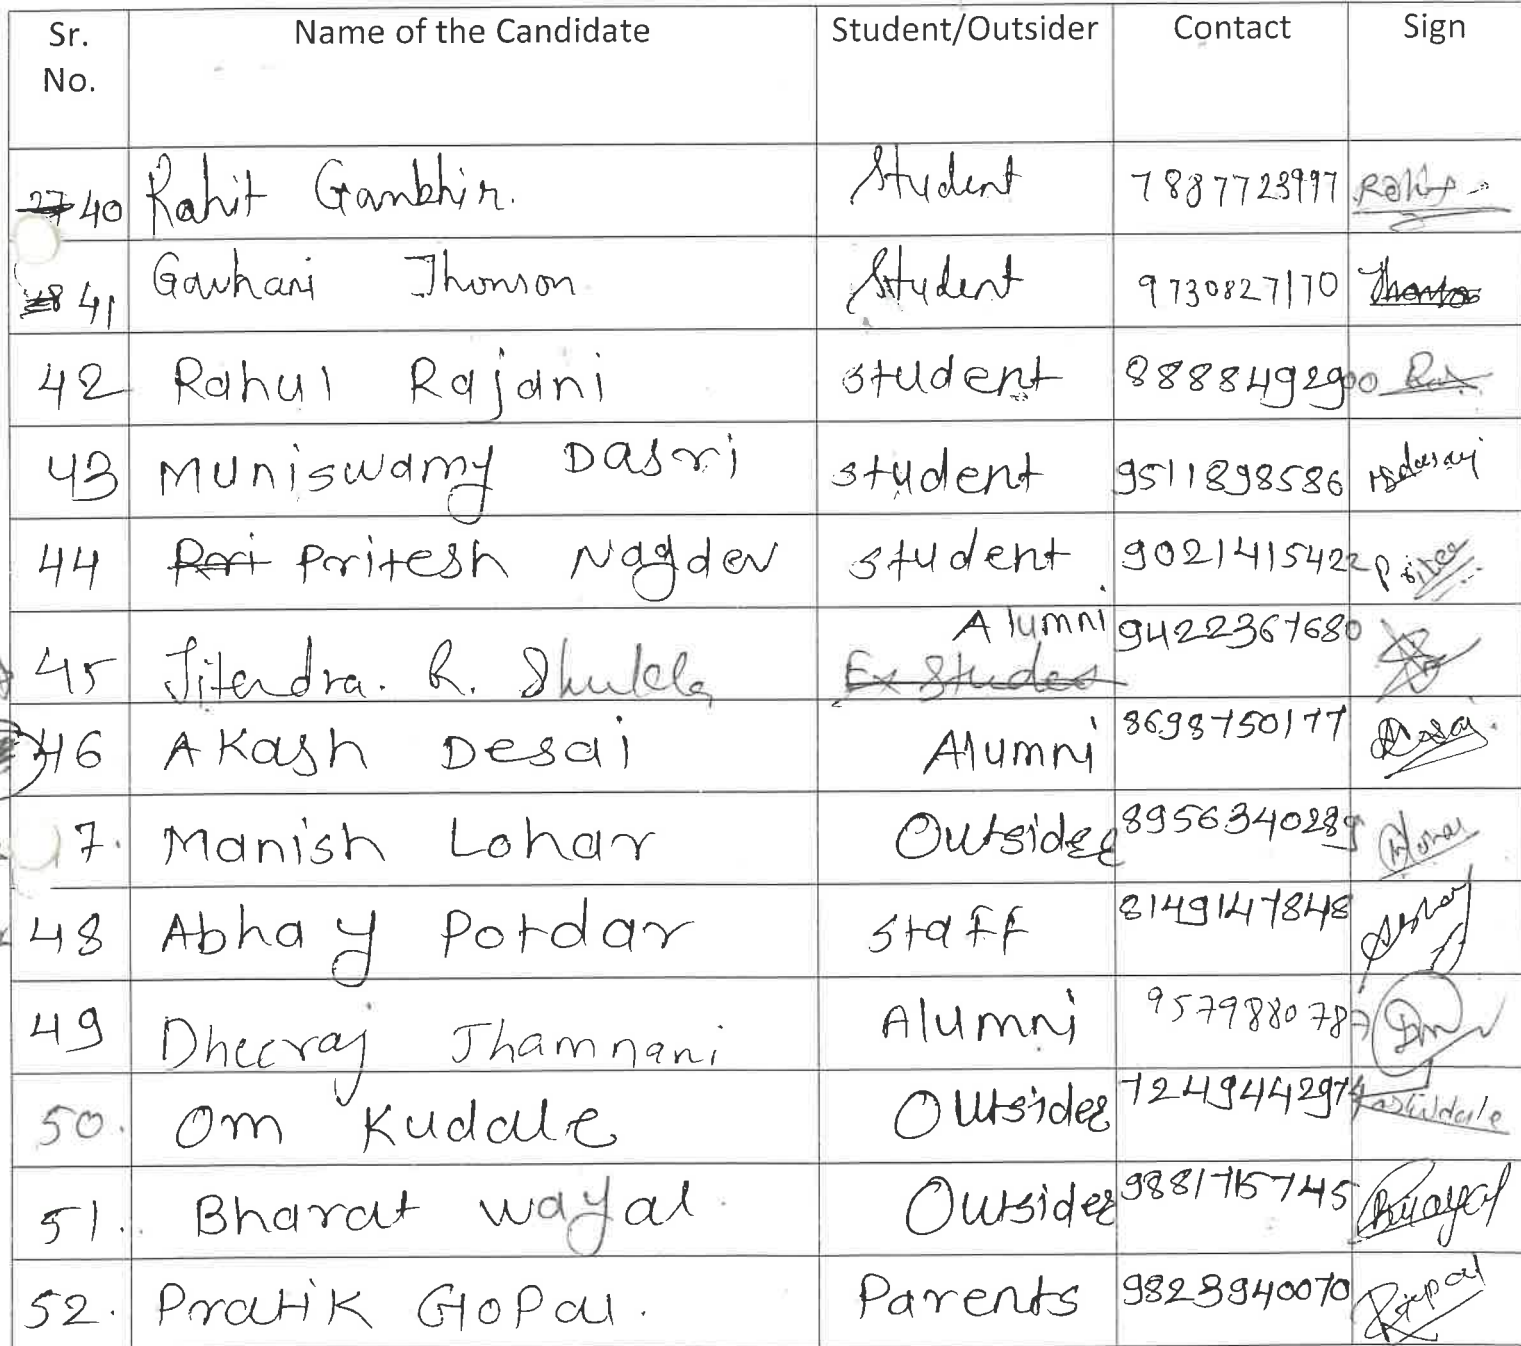 Sr. No. Name of the Candidate Student/Outsider Contact Sign
40 Rahit Gambhir. Student 7887723997 Rohit
41 Gavhani Jhonson Student 9730827170
42 Rahul Rajani student 8888492900
43 Muniswamy Dasri student 9511898586
44 Pritesh Nagdev student 9021415422
45 Jitendra. R. Shukla Alumni 9422367680
Ex Student
46 Akash Desai Alumni 8698750177 Desai
7. Manish Lohar Outsider 8956340289 Lohar
48 Abhay Potdar staff 8149147848 Abhay
49 Dheeraj Jhamnani Alumni 9579880787
50. Om Kudale Outsider 7249442974 Kudale
51. Bharat wayal. Outsider 9881715745 Bwayal
52. Pratik Gopal. Parents 9823940070